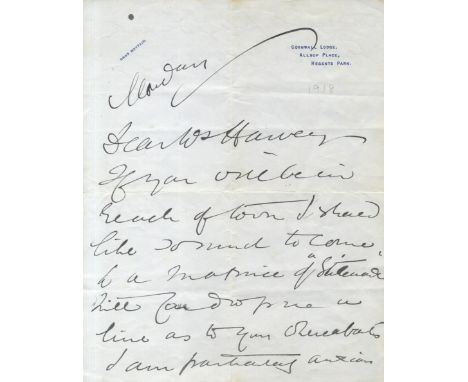 CORNWALL LODGE,
ALLSOP PLACE,
REGENTS PARK.
1918
Monday
Dear Mrs Harvey
If you will be in
reach of town I should
like so much to come
to a matinee of
will you drop me a
line as to your whereabouts
I am particularly anxious